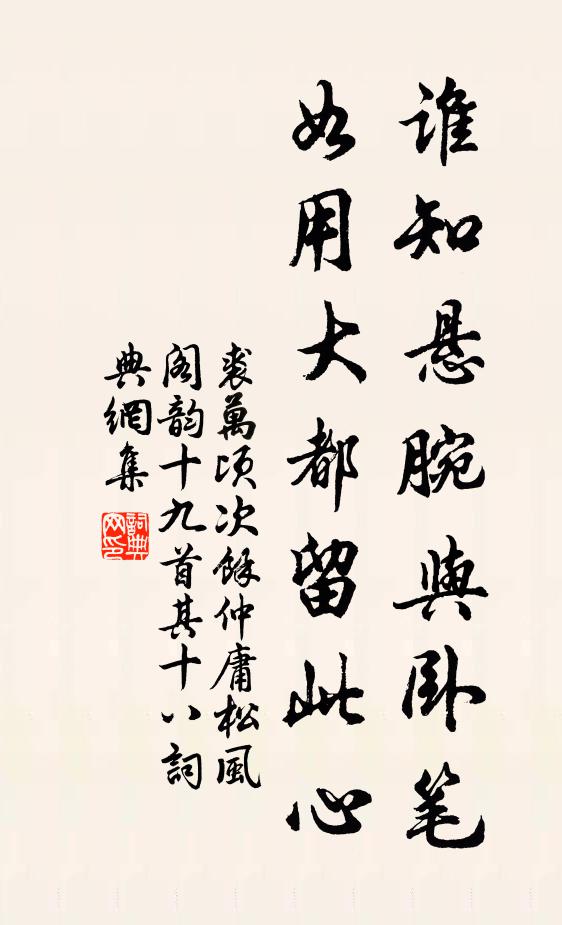 誰知悬腕與卧笔
妙用大都留此心
裘萬頃次餘仲庸松風
閣韵十九首其十八詞
典網集
詞典
网印